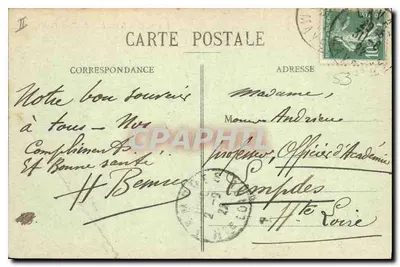 II
CARTE POSTALE
CORRESPONDANCE
ADRESSE
53
Notre bon souvenir
à tous - Nos
Compliments.
Et Bonne santé
Madame,
Monsieur Andrieu
Professeur, Officier d'Académie
Lempdes
Hte Loire
CPAPHIL